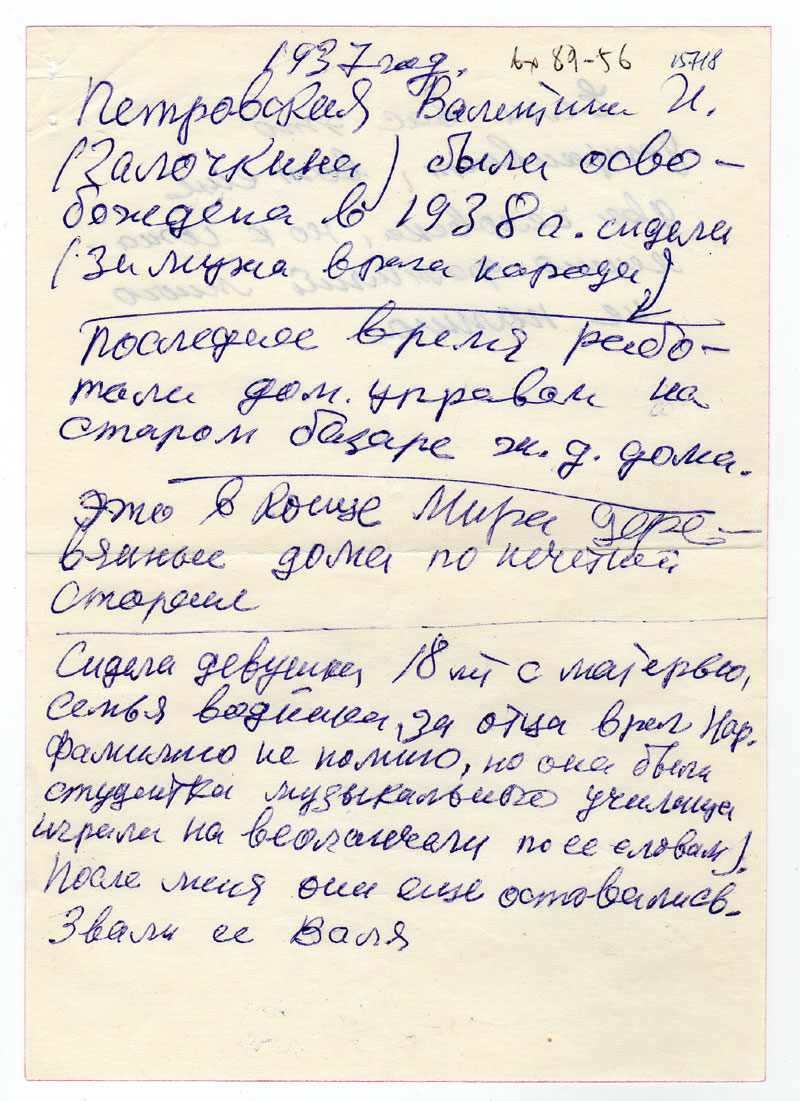 1937 год. вх 89-56 15718
Петровская Валентина И.
(Залочкина) была осво-
бождена в 1938 г. сидела
(за мужа врага народа)
последнее время рабо-
тала дом. управом на
старом базаре ж.д. дома.
это в конце Мира дере-
вянные дома по нечетной
стороне
Сидела девушка 18 лет с матерью,
семья водника, за отца враг нар.
фамилию не помню, но она была
студентка музыкального училища
играла на веолончели по ее словам).
После меня они еще оставались.
Звали ее Валя